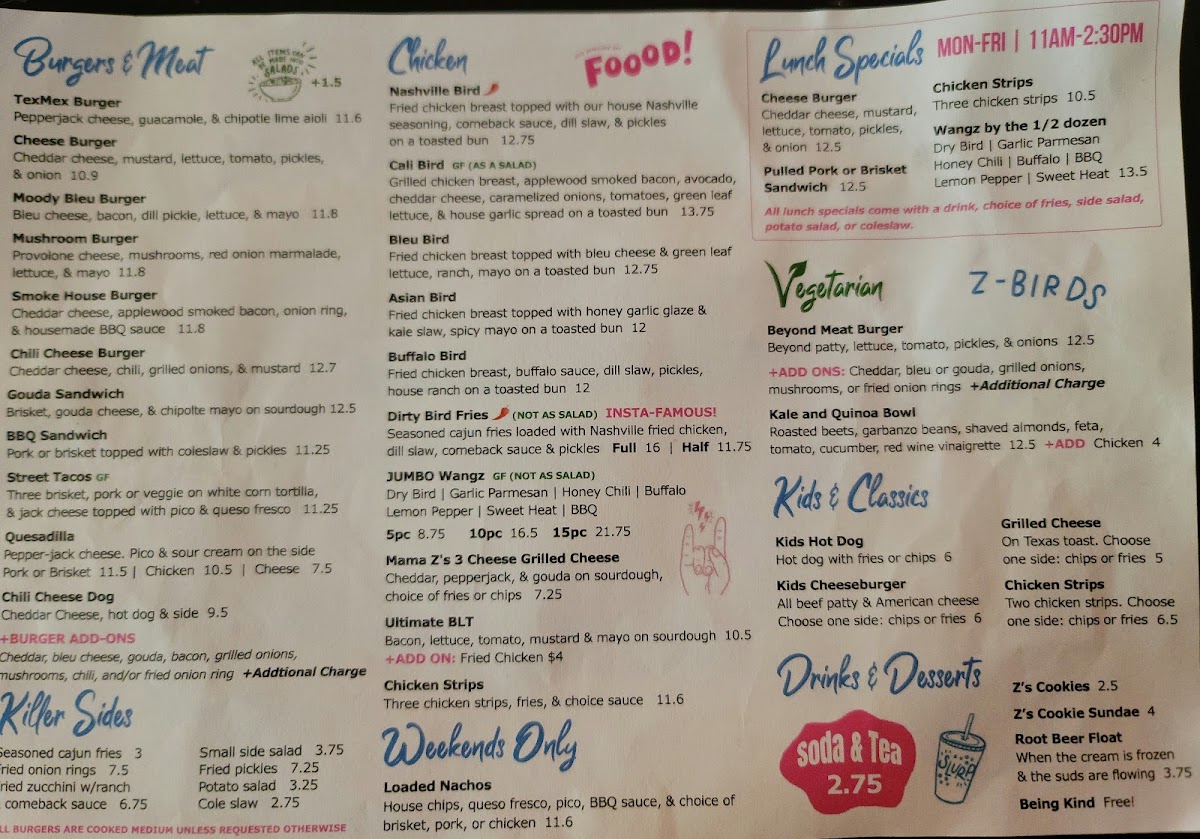 Burgers & Meat
ALL ITEMS CAN
BE MADE INTO
SALADS
+1.5
TexMex Burger
Pepperjack cheese, guacamole, & chipotle lime aioli 11.6
Cheese Burger
Cheddar cheese, mustard, lettuce, tomato, pickles,
& onion 10.9
Moody Bleu Burger
Bleu cheese, bacon, dill pickle, lettuce, & mayo 11.8
Mushroom Burger
Provolone cheese, mushrooms, red onion marmalade,
lettuce, & mayo 11.8
Smoke House Burger
Cheddar cheese, applewood smoked bacon, onion ring,
& housemade BBQ sauce 11.8
Chili Cheese Burger
Cheddar cheese, chili, grilled onions, & mustard 12.7
Gouda Sandwich
Brisket, gouda cheese, & chipolte mayo on sourdough 12.5
BBQ Sandwich
Pork or brisket topped with coleslaw & pickles 11.25
Street Tacos GF
Three brisket, pork or veggie on white corn tortilla,
& jack cheese topped with pico & queso fresco 11.25
Quesadilla
Pepper-jack cheese. Pico & sour cream on the side
Pork or Brisket 11.5 | Chicken 10.5 | Cheese 7.5
Chili Cheese Dog
Cheddar Cheese, hot dog & side 9.5
+BURGER ADD-ONS
Cheddar, bleu cheese, gouda, bacon, grilled onions,
mushrooms, chili, and/or fried onion ring +Addtional Charge
Killer Sides
Seasoned cajun fries 3
Fried onion rings 7.5
Fried zucchini w/ranch
comeback sauce 6.75
Small side salad 3.75
Fried pickles 7.25
Potato salad 3.25
Cole slaw 2.75
ALL BURGERS ARE COOKED MEDIUM UNLESS REQUESTED OTHERWISE
Chicken
FOOOD!
Nashville Bird
Fried chicken breast topped with our house Nashville
seasoning, comeback sauce, dill slaw, & pickles
on a toasted bun 12.75
Cali Bird GF (AS A SALAD)
Grilled chicken breast, applewood smoked bacon, avocado,
cheddar cheese, caramelized onions, tomatoes, green leaf
lettuce, & house garlic spread on a toasted bun 13.75
Bleu Bird
Fried chicken breast topped with bleu cheese & green leaf
lettuce, ranch, mayo on a toasted bun 12.75
Asian Bird
Fried chicken breast topped with honey garlic glaze &
kale slaw, spicy mayo on a toasted bun 12
Buffalo Bird
Fried chicken breast, buffalo sauce, dill slaw, pickles,
house ranch on a toasted bun 12
Dirty Bird Fries (NOT AS SALAD) INSTA-FAMOUS!
Seasoned cajun fries loaded with Nashville fried chicken,
dill slaw, comeback sauce & pickles Full 16 | Half 11.75
JUMBO Wangz GF (NOT AS SALAD)
Dry Bird | Garlic Parmesan | Honey Chili | Buffalo
Lemon Pepper | Sweet Heat | BBQ
5pc 8.75 10pc 16.5 15pc 21.75
Mama Z's 3 Cheese Grilled Cheese
Cheddar, pepperjack, & gouda on sourdough,
choice of fries or chips 7.25
Ultimate BLT
Bacon, lettuce, tomato, mustard & mayo on sourdough 10.5
+ADD ON: Fried Chicken $4
Chicken Strips
Three chicken strips, fries, & choice sauce 11.6
Weekends Only
Loaded Nachos
House chips, queso fresco, pico, BBQ sauce, & choice of
brisket, pork, or chicken 11.6
Lunch Specials MON-FRI | 11AM-2:30PM
Cheese Burger
Cheddar cheese, mustard,
lettuce, tomato, pickles,
& onion 12.5
Pulled Pork or Brisket
Sandwich 12.5
Chicken Strips
Three chicken strips 10.5
Wangz by the 1/2 dozen
Dry Bird | Garlic Parmesan
Honey Chili | Buffalo | BBQ
Lemon Pepper | Sweet Heat 13.5
All lunch specials come with a drink, choice of fries, side salad,
potato salad, or coleslaw.
Vegetarian
Z-BIRDS
Beyond Meat Burger
Beyond patty, lettuce, tomato, pickles, & onions 12.5
+ADD ONS: Cheddar, bleu or gouda, grilled onions,
mushrooms, or fried onion rings +Additional Charge
Kale and Quinoa Bowl
Roasted beets, garbanzo beans, shaved almonds, feta,
tomato, cucumber, red wine vinaigrette 12.5 +ADD Chicken 4
Kids & Classics
Kids Hot Dog
Hot dog with fries or chips 6
Kids Cheeseburger
All beef patty & American cheese
Choose one side: chips or fries 6
Grilled Cheese
On Texas toast. Choose
one side: chips or fries 5
Chicken Strips
Two chicken strips. Choose
one side: chips or fries 6.5
Drinks & Desserts
soda & Tea
2.75
SLURP
Z's Cookies 2.5
Z's Cookie Sundae 4
Root Beer Float
When the cream is frozen
& the suds are flowing 3.75
Being Kind Free!